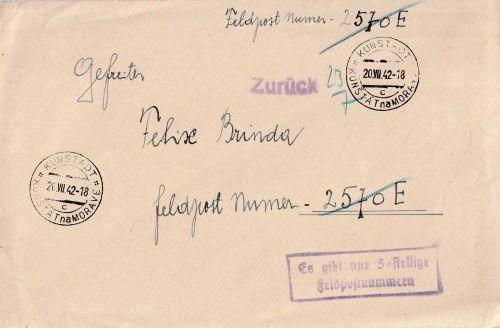 Feldpost Numer - 2570 E
KUNSTADT
20.VII.42-18
c
KUNŠTÁT na MORAVĚ
Gefreiter
Zurück
23/7
Felix Brinda
KUNSTADT
20.VII.42-18
c
KUNŠTÁT na MORAVĚ
feldpost Numer - 2570 E
Es gibt nur 5-stellige
Feldpostnummern